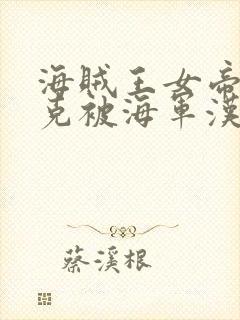 海賊王女帝
克被海軍漢
蔡溪根